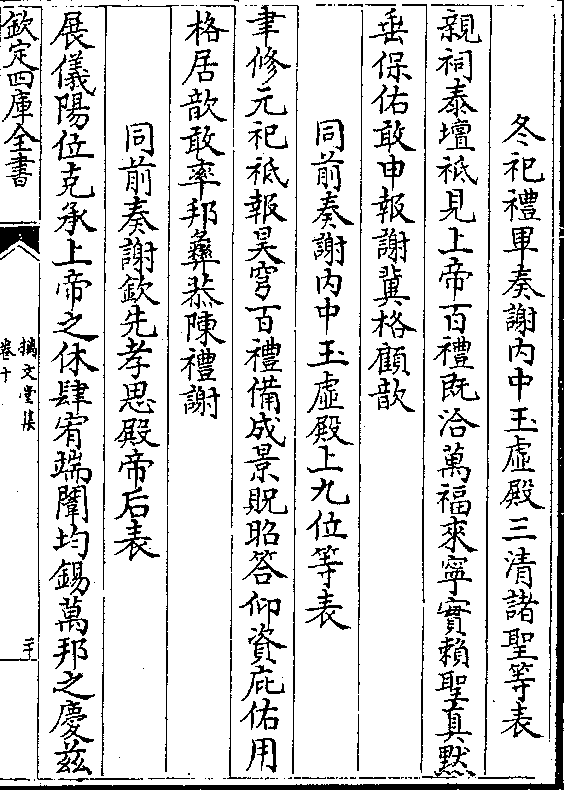 冬祀禮畢奏謝内中玉虛殿三清諸聖等表
親祠泰壇祗見上帝百禮既洽萬福來寧實賴聖真黙
垂保佑敢申報謝冀格顧歆
同前奏謝内中玉虛殿上九位等表
聿修元祀祗報昊穹百禮備成景貺昭答仰資庇佑用
格居歆敢率邦彝恭陳禮謝
同前奏謝欽先孝思殿帝后表
展儀陽位克承上帝之休肆宥端闈均錫萬邦之慶兹
欽定四庫全書
摛文堂集
卷十
二十